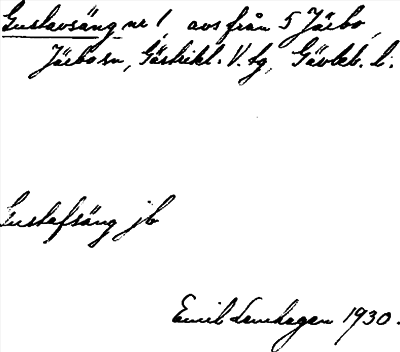 Gustavsäng nr 1, avs från 5 Järbo,
Järbo sn, Gästrikl. V. tg, Gävleb. l.
Gustafsäng jb
Emil Lenhagen 1930.